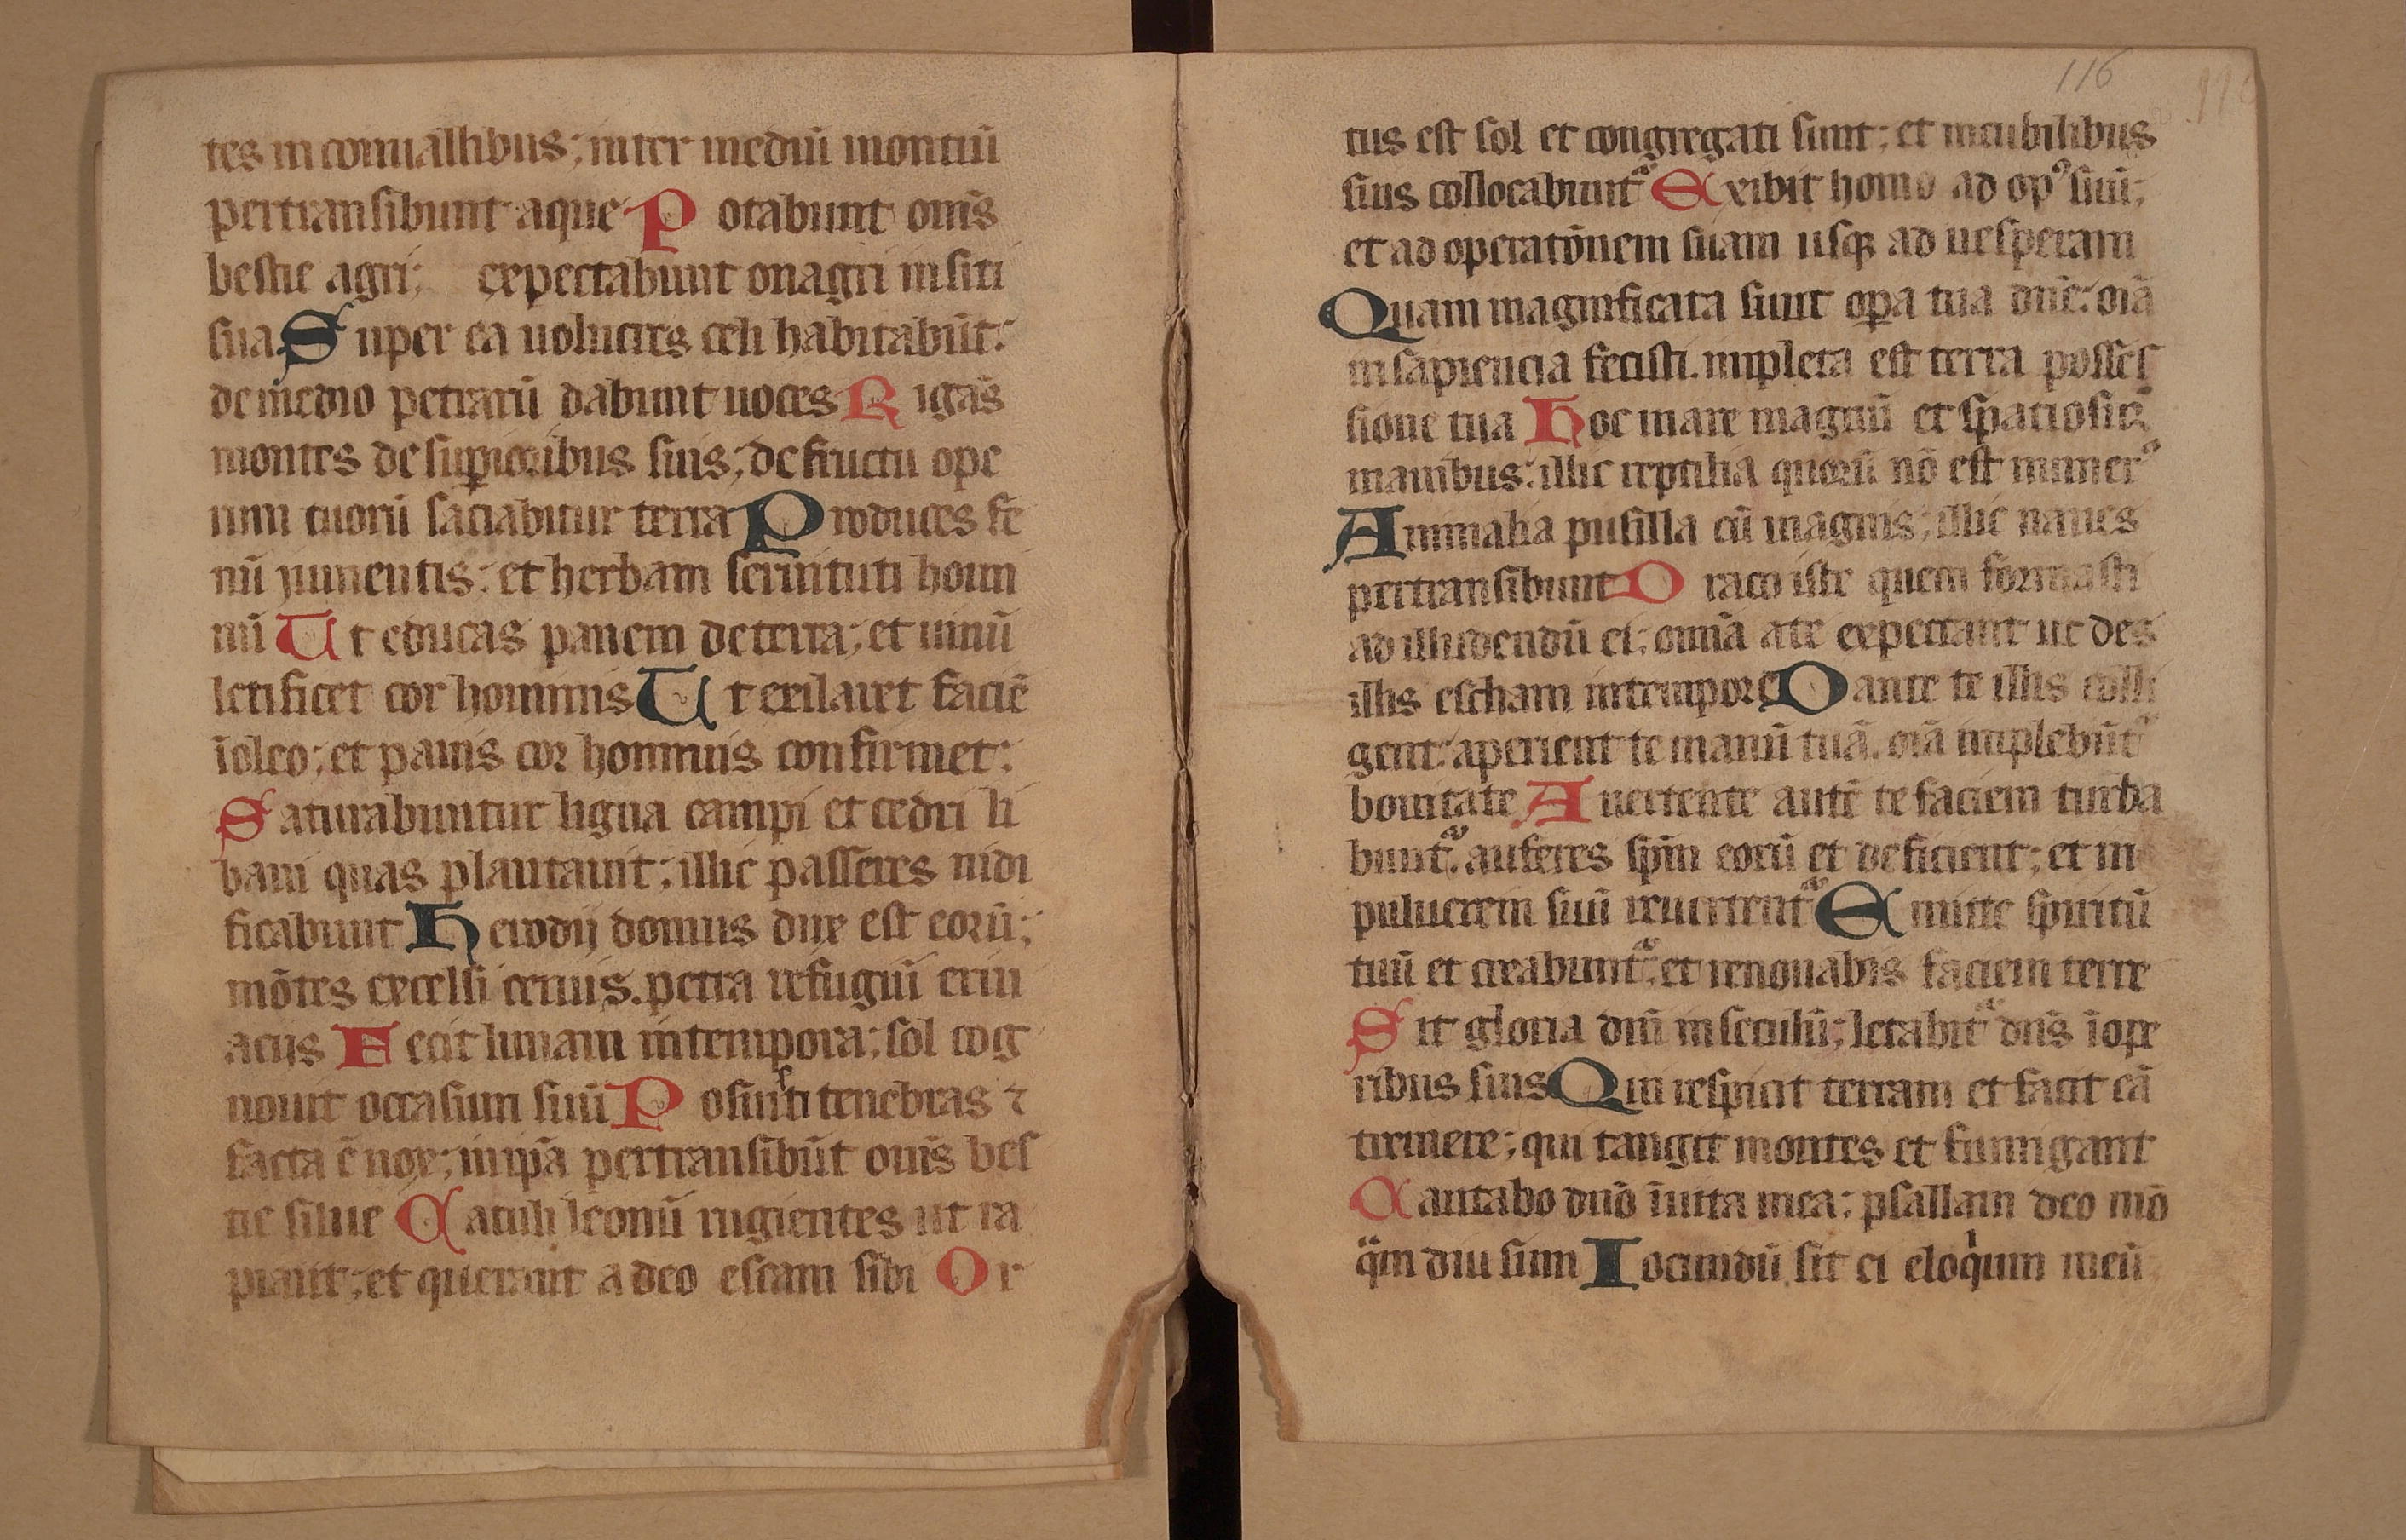 tes in conuallibus; inter mediū montiū
pertransibunt aque P otabunt om̄s
bestie agri; expectabunt onagri in siti
sua S uper ea uolucres celi habitabūt:
de medio petrarū dabunt uoces R igās
montes de suꝑioribus suis; de fructu ope
rum tuorū saciabitur terra P roduces fe
nū jumentis: et herbam seruituti homi
nū U t educas panem de terra; et uinū
letificet cor hominis U t exilaret faciē
ī oleo; et panis cor hominis confirmet:
S aturabuntur ligna campi et cedri li
bani quas plantauit; illic passeres nidi
ficabunt H erodij domus dux est eorū;
mōtes excelsi ceruis. petra refugiū erin
acijs F ecit lunam in tempora; sol cog
nouit occasum suū P osuisti tenebras ⁊
facta ē nox; in ip̄a pertransibūt om̄s bes
tie silue C atuli leonū rugientes ut ra
piant; et querant a deo escam sibi O r
116
tus est sol et congregati sunt; et in cubilibus
suis collocabuntᵃ E xibit homo ad opꝰ suū;
et ad operatōnem suam usqꝫ ad uesperam
Quam magnificata sunt oꝑa tua dn̄e: oīa
in sapiencia fecisti. impleta est terra posses
sione tua H oc mare magnū et spatiosū
manibus: illic reptilia quorū nō est numerꝰ
A nimalia pusilla cū magnis; illic naues
pertransibunt D raco iste quem formasti
ad illudendū ei: omīa a te expectant ut des
illis escham in tempore D ante te illis colli
gent: aperient te manū tuā. oīa implebūtᵃ
bonitate A uertente autē te faciem turba
buntᵃ. auferes sp̄m eorū et deficient; et in
puluerem suū reuertentᵃ E mitte spiritū
tuū et creabuntᵃ; et renouabis faciem terre
S it gloria dn̄i in seculū; letabitᵃ dn̄s ī ope
ribus suis Q ui respicit terram et facit eā
tremere; qui tangit montes et fumigant
C antabo dn̄o ī uita mea; psallam deo mō
qᵃm diu sum I ocundū sit ei eloqⁱum meū